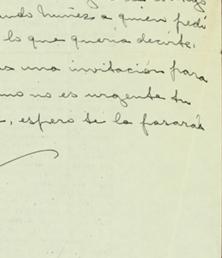 ando Núñez a quien pedí
lo que quería decirte.
una invitación para
no es urgente tu
, espero te la pasarás